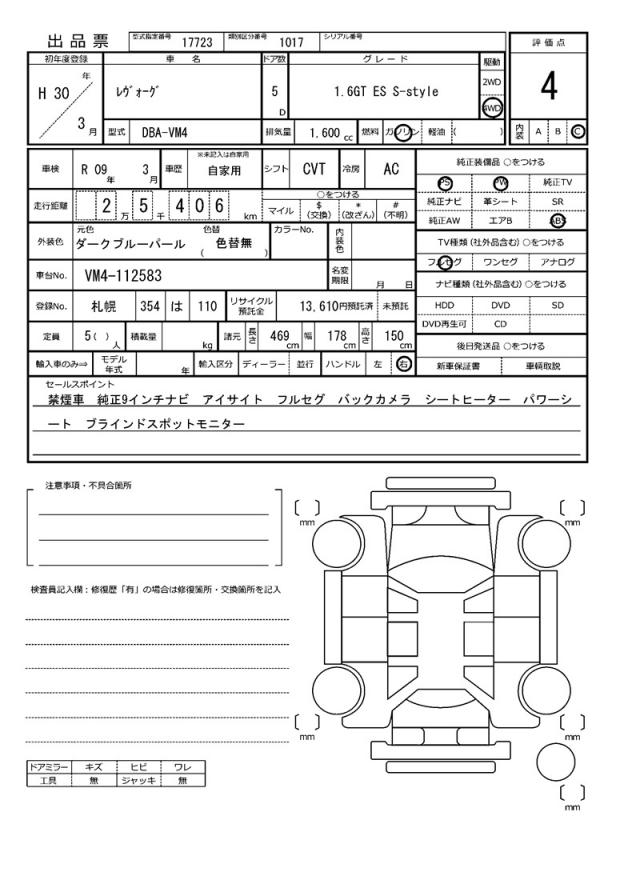 出品票 型式指定番号 17723 類別区分番号 1017 シリアル番号
評価点
4
内装 A B C
初年度登録 車名 ドア数 グレード 駆動
H 30 年 3 月
レヴォーグ 5 D 1.6GT ES S-style 2WD 4WD
型式 DBA-VM4 排気量 1.600 cc 燃料 ガソリン 軽油 ( )
車検 R 09 年 3 月 車歴 ※未記入は自家用 自家用 シフト CVT 冷房 AC
純正装備品 ○をつける
PS PW 純正TV
純正ナビ 革シート SR
純正AW エアB ABS
走行距離 2 万 5 千 4 0 6 km
○をつける
マイル $(交換) *(改ざん) #(不明)
TV種類(社外品含む)○をつける
フルセグ ワンセグ アナログ
外装色 元色 ダークブルーパール 色替 (色替無) カラーNo. 内装色
車台No. VM4-112583 名変期限 月 日
ナビ種類(社外品含む)○をつける
HDD DVD SD
DVD再生可 CD
登録No. 札幌 354 は 110 リサイクル預託金 13,610円預託済 未預託
定員 5( )人 積載量 kg 諸元 長さ 469 cm 幅 178 cm 高さ 150 cm
後日発送品 ○をつける
新車保証書 車輌取説
輸入車のみ⇒ モデル年式 年 輸入区分 ディーラー 並行 ハンドル 左 右
セールスポイント
禁煙車 純正9インチナビ アイサイト フルセグ バックカメラ シートヒーター パワーシ
ート ブラインドスポットモニター
注意事項・不具合箇所
検査員記入欄：修復歴「有」の場合は修復箇所・交換箇所を記入
ドアミラー キズ ヒビ ワレ
工具 無 ジャッキ 無
[ ] mm
[ ] mm
[ ] mm
[ ] mm
[ ] mm